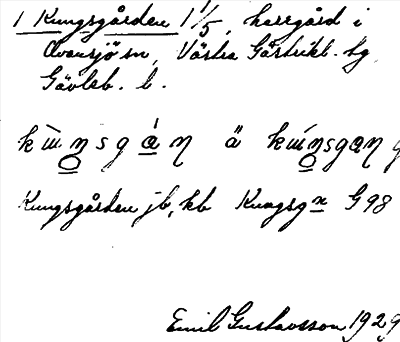 1 Kungsgården 1 1/5, herrgård i
Ovansjö sn, Västra Gästrikl. tg
Gävleb. l.
Kungsgården jb, kb Kungsgn G98
Emil Gustavsson 1929